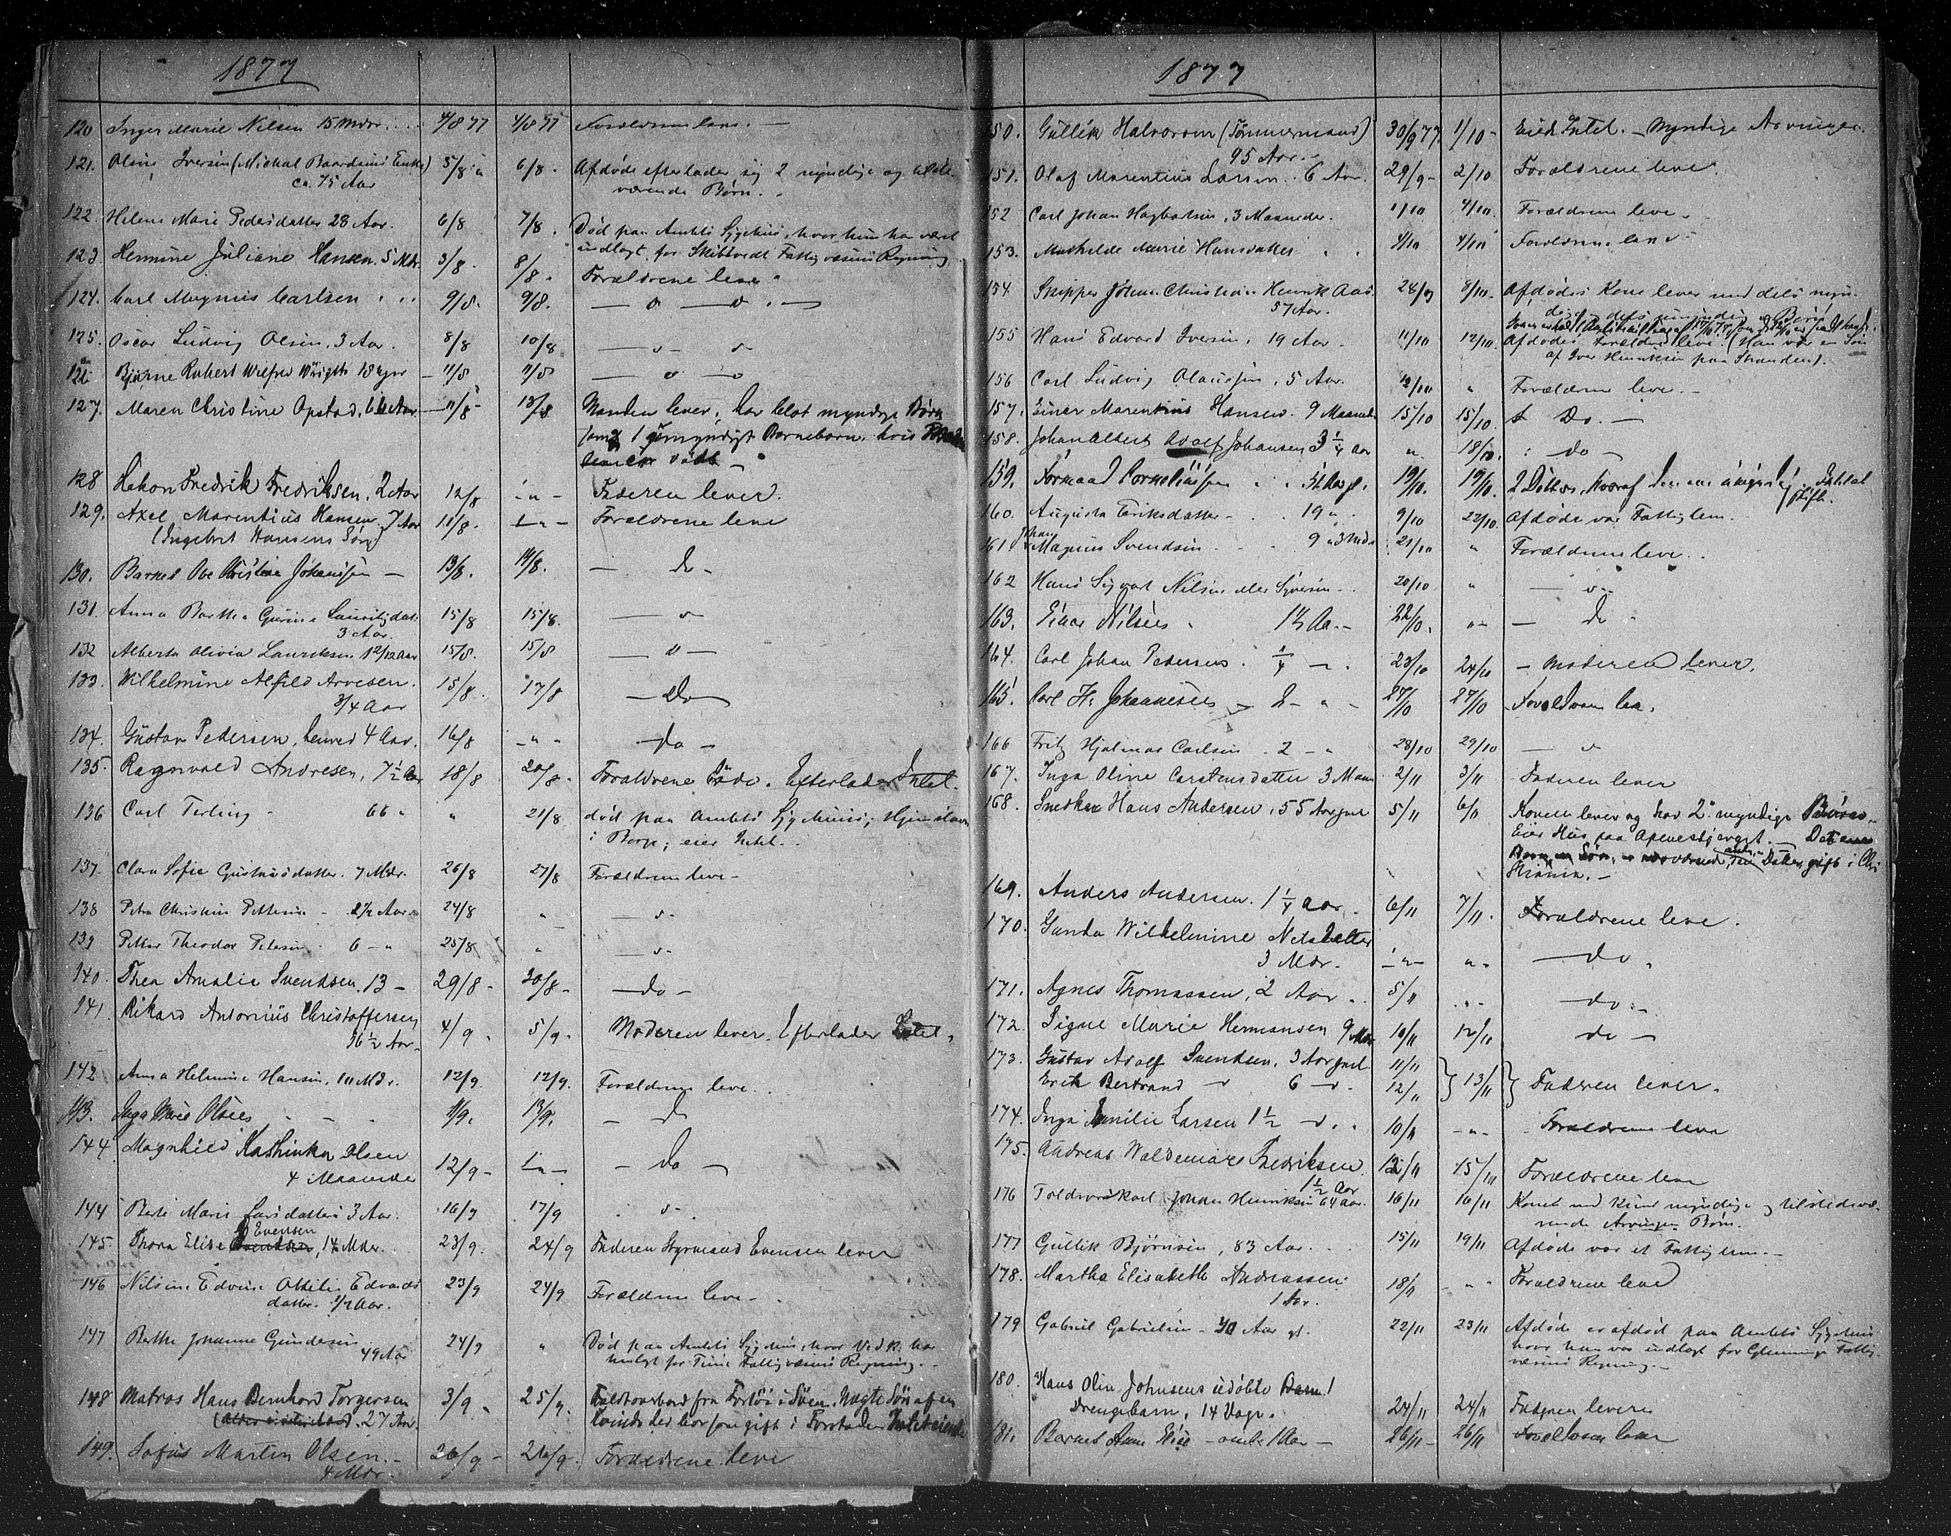 1877
120 Inger Marie Nilsen 15 Mdr. 4/8 77 4/8 77 Forældrene leve. —
121. Oline Iversen (Michal Baardsens Enke) 5/8 6/8. Afdøde efterlader sig 2 myndige og tilstede-
ca. 75 Aar værende Børn.
122. Helene Marie Pedersdatter 28 Aar. 6/8 7/8. Død paa Amtets Sygehus, hvor hun har vært
indlagt for Skibtvedt Fattigvæsens Regning
123. Hermine Juliane Hansen. 5 Mdr. 3/8. 8/8 Forældrene leve
124. Carl Magnus Carlsen 9/8. 9/8. — o — o —
125. Oscar Ludvig Olsen, 3 Aar. 8/8 10/8 — o — o
126 Bjarne Robert Wilfred Wright 18 — 11/8 11/8 — o — o
127. Maren Christine Opstad, Aar — 11/8 13/8 Manden lever, har blot myndige Børn
samt 1 umyndigt Barnebarn, hvis
døde —
128 Hakon Fredrik Fredriksen. 2 Aar 12/8 — " — Faderen lever.
129. Axel Marentius Hansen 7 Aar 11/8. — " — Forældrene leve
(Ingebret Hansens Søn)
130. Barnet Ove Kristine Johanssen — 13/8. 14/8. — do —
131. Anna Barthe Gurine Lauritzdat. 15/8 15/8. — o
3 Aar.
132 Alberta Olivia Lauriksen 1 2/12 Aar 15/8. 15/8 — o —
133. Wilhelmine Alfild Arvesen. 15/8. 17/8 — do
3/4 Aar
134. Gustav Pedersen, henved 4 Aar. 16/8 — " — do —
135. Ragnvald Andresen, 7½ Aar 18/8 20/8. Forældrene døde. Efterlader Intet.
136 Carl Terling 66 " " 21/8 død paa Amtets Sygehuus; Hjemstavn
i Borge; eier Intet.
137. Clara Sofie Gustavsdatter. 7 Mdr. 26/8 27/8 Forældrene leve —
138 Petra Christine Pettersen — 2½ Aar 24/8 " — o —
139 Petter Theodor Petersen 6 — " 25/8 " — o —
140. Thea Amalie Svendsen. 13 — 29/8 — 30/8 — — do —
141. Rikard Antonius Christoffersen 4/9 — 5/9. Moderen lever. Efterlader Intet.
16½ Aar
142 Anna Helmine Hansen, 10 Mdr. 12/9. 12/9. Forældrene leve.
143. Inga Marie Olsen — 11/9. 13/9. — do
144 Magnhild Kathinka Olsen 12/9 — — " — — do —
4 Maaneder
144 Berte Marie Larsdatter 3 Aar. 16/9 17/9 — o —
145. Thora Elise Evensen, 14 Mdr. 23/9. 24/9 Faderen Styrmand Evensen lever
146 Nilsine Edvine Ottilie Edvards 23/9 24/9 Forældrene leve —
datter. ½ Aar.
147 Berthe Johanne Gundersen 24/9 " Død paa Amtets Sygehus, hvor Vedk. har
49 Aar indlagt for Tune Fattigvæsens Regning. —
148 Matros Hans Bernhard Torgersen 3/9 — 25/9. Faldt overbord fra Fartøi i Søen. Uægte Søn af en
27 Aar. Kvinde der bor som gift i Forstaden. Intet eiende
149. Sofus Martin Olsen. — 26/9 — 26/9. Forældrene leve
4 Mdr.
1877
150. Gullik Halvorsen (Tømmermand) 30/9 77. 1/10 — Eied Intet. — Myndige Arvinger.
95 Aar. —
151. Olaf Marentius Larsen. 6 Aar. 29/9 — 2/10 Forældrene leve.
152 Carl Johan Hagbartsen, 3 Maaneder. 1/10 4/10. Forældrene leve —
153. Mathilde Marie Hansdatter 4/10 4/10 Forældrene leve
154 Skipper Johan Christian Henrik Aas. 24/9 8/10. Afdødes Kone lever med dels myn-
57 Aar. dige dels umyndige Børn
155 Hans Edvard Iversen, 19 Aar. 11/10 12/10. Afdødes Forældre leve (Han var en Søn
af Iver Henriksen paa Stranden).
156 Carl Ludvig Olaussen, 5 Aar. 12/10 " Forældrene leve. —
157. Einar Marentius Hansen. 9 Maaneder 15/10 15/10. Do. —
158. Johan Albert Adolf Johansen 3¼ Aar " 18/10. do —
159. Cornelius 19/10. 19/10. 2 Døttre, hvoraf den ene
160. Augusta Eriksdatter — 19 " 9/10 22/10 Afdøde var Fattiglem.
161 Johan Magnus Svendsen 9 " 3 Mdr 21/10 " Forældrene leve.
162 Hans Sigvat Nilsen eller Syversen 20/10 " — o —
163. Einar Nilsen 1½ Aa. — 22/10. " — — do
164. Carl Johan Pedersen. ¼ — 23/10 24/10 — Moderen lever.
165. Carl H. Johannesen 2 — " — 27/10 27/10 Forældrene leve.
166 Fritz Hjalmar Carlsen 2 — " 28/10 29/10 — o
167. Inga Oline Carstensdatter 3 Maan 2/11 3/11 Faderen lever
168. Snedker Hans Andersen, 55 Aar gml 5/11 6/11 Konen lever og har 2 myndige Børn.
Eier Hus paa Apenesbjerget. — Det ene
Barn, en Søn, er nærværende, den anden Datter gift i Chri
stiania. —
169. Anders Andersen. 1¼ Aar. 6/11 7/11. Forældrene leve.
170. Gunda Wilhelmine Nelsdatter
3 Mdr. — " — " — do.
171. Agnes Thomassen, 2 Aar. 5/11 " — do. —
172. Signe Marie Hermansen 9 Mdr 10/11 12/11 do —
173. Gustav Adolf Svendsen, 3 Aar gml 11/11
Erik Bertrand — o 6 — o. 12/11 } 13/11 } Faderen lever.
174. Inga Emilie Larsen 1½ — o. 10/11 — " — Forældrene leve
175. Andreas Waldemar Fredriksen. 12/11 15/11 Forældrene leve
1½ Aar
176 Toldvorskarl Johan Henriksen 64 Aar. 16/11 16/11 Konet med kuns myndige og tilstedevæ-
rende Arvinger Børn.
177 Gullik Bjørnsen, 83 Aar. 15/11 19/11 Afdøde var et Fattiglem. —
178. Martha Elisabeth Andreassen. 18/11 " " Forældrene leve
1 Aar.
179 Gabriel Gabrielsen — 40 Aar gl. 22/11 23/11 Afdøde er afdød paa Amtets Sygehus
hvor han var indlagt for Glemminge Fattig
væsens Regning. —
180. Hans Olin Johnsens udøbte Barn!
Drengebarn, 14 Dage. 24/11 24/11 Faderen lever
181. Barnet Anne Elise — omtr. 1 Aar — 26/11 — 26/11 Forældrene leve